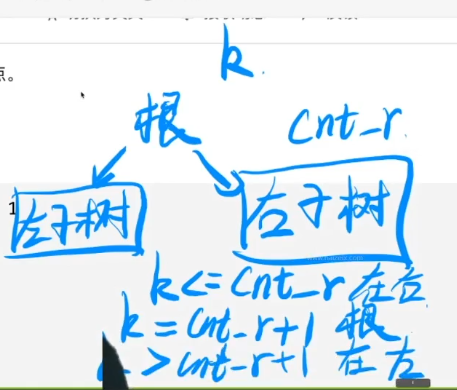 点。
k
根 cnt_r
1
左子树 右子树
k<=cnt_r 在右
k=cnt_r+1 根
>cnt_r+1 在左